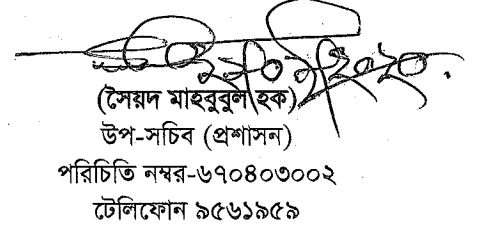 (সৈয়দ মাহবুবুল হক)
উপ-সচিব (প্রশাসন)
পরিচিতি নম্বর-৬৭০৪০৩০০২
টেলিফোন ৯৫৬১৯৫৯